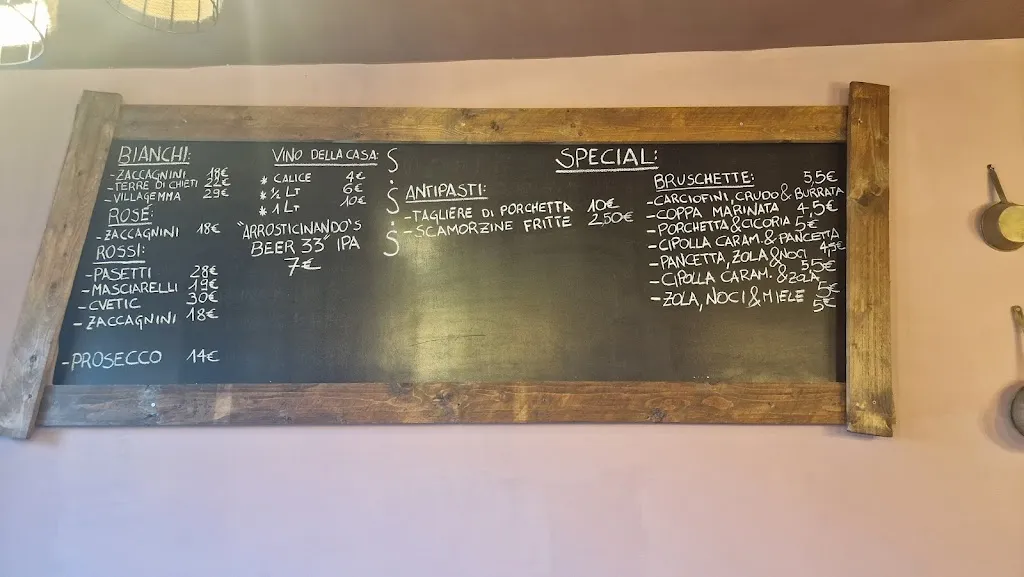 BIANCHI:
-ZACCAGNINI 18€
-TERRE DI CHIETI 22€
-VILLAGEMMA 29€
ROSÉ:
-ZACCAGNINI 18€
ROSSI:
-PASETTI 28€
-MASCIARELLI 19€
-CVETIC 30€
-ZACCAGNINI 18€
-PROSECCO 14€
VINO DELLA CASA:
* CALICE 4€
* ½ LT 6€
* 1 LT 10€
"ARROSTICINANDO'S
BEER 33" IPA
7€
S.S.S
SPECIAL:
ANTIPASTI:
-TAGLIERE DI PORCHETTA 10€
-SCAMORZINE FRITTE 2,50€
BRUSCHETTE:
-CARCIOFINI, CRUDO & BURRATA 5,5€
-COPPA MARINATA 4,5€
-PORCHETTA & CICORIA 5€
-CIPOLLA CARAM. & PANCETTA 4,5€
-PANCETTA, ZOLA & NOCI 5,5€
-CIPOLLA CARAM. & ZOLA 5€
-ZOLA, NOCI & MIELE 5€